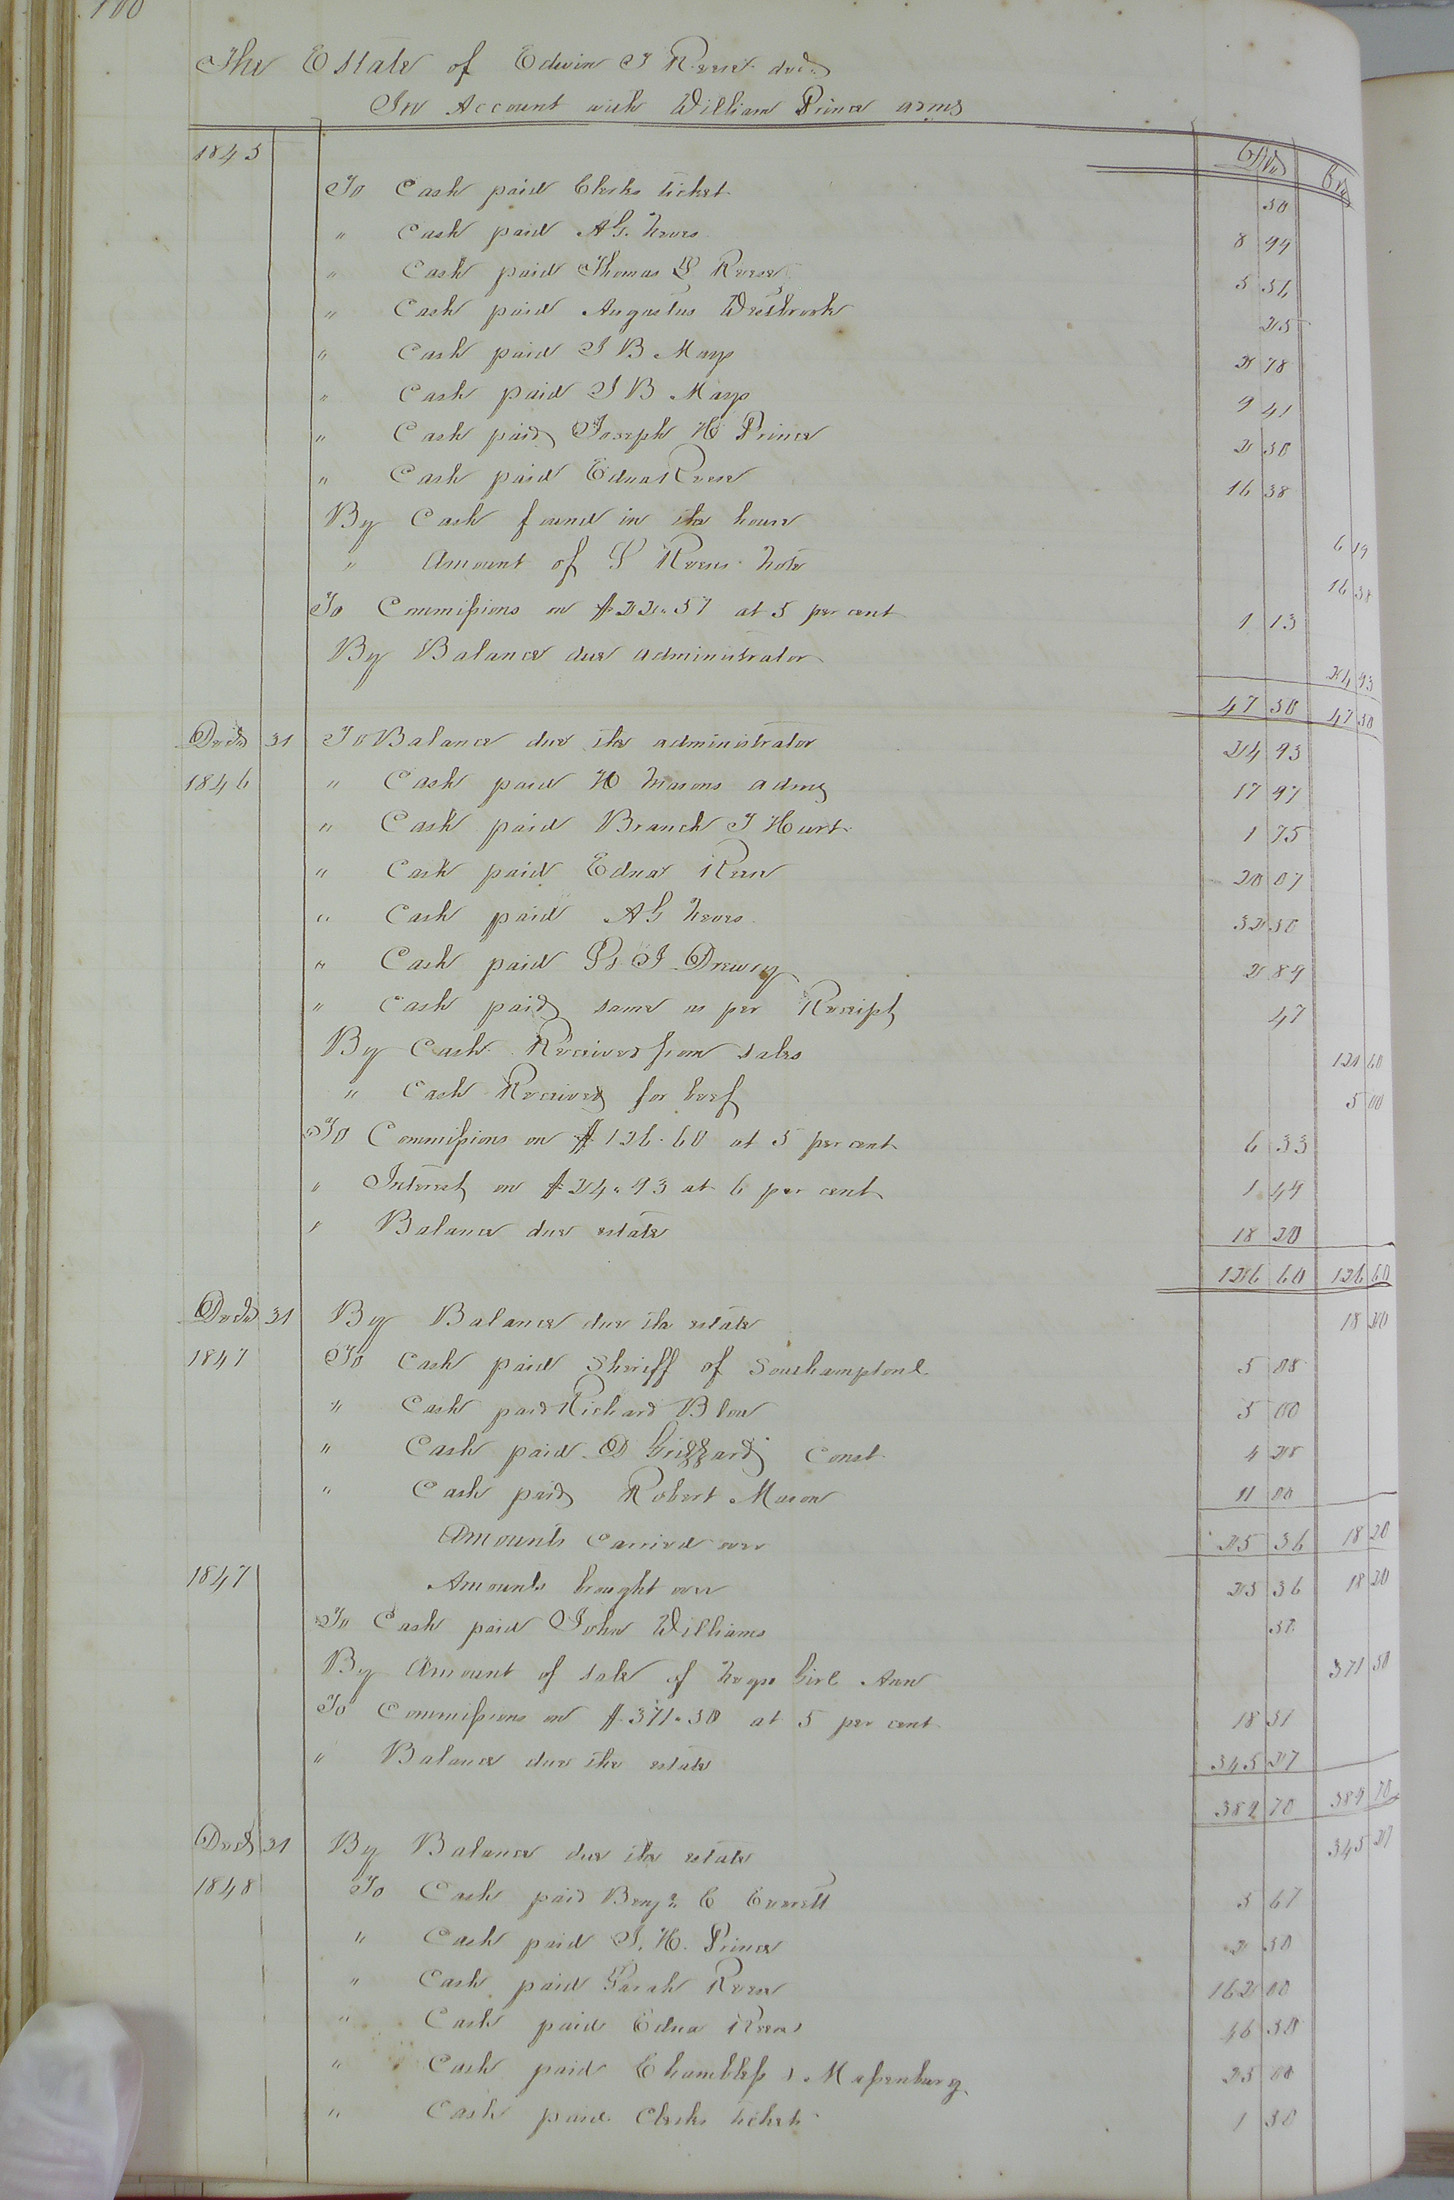 100
The Estate of Edwin J Reese decd
In Account with William Prince adms
1845
Drs Crs
To Cash paid Clerks ticket 50
" Cash paid A G. Neves 8 94
" Cash paid Thomas L Reese 5 56
" Cash paid Augustus Westbrook 25
" Cash paid J B Mayo 2 78
" Cash paid J B Mayo 9 41
" Cash paid Joseph H Prince 2 50
" Cash paid Edna Reese 16 38
By Cash found in the house 6 19
" Amount of S Reeses Note 16 38
To Commissions on $22.57 at 5 per cent 1 13
By Balance due administrator 24 93
47 50 47 50
Decr 31 To Balance due the administrator 24 93
1846 " Cash paid H Masons adms 17 97
" Cash paid Branch J Hart 1 75
" Cash paid Edna Reese 20 07
" Cash paid A G Neves 32 50
" Cash paid Drewry 2 89
" Cash paid same as per Receipt 47
By Cash Received from sales 121 60
" Cash Received for beef 5 00
To Commissions on $126.60 at 5 per cent 6 33
" Interest on $24.93 at 6 per cent 1 49
" Balance due estate 18 20
126 60 126 60
Decr 31 By Balance due the estate 18 20
1847 To Cash paid Sheriff of Southampton 5 08
" Cash paid Richard Blow 5 00
" Cash paid D Grizzard Const 4 28
" Cash paid Robert Mason 11 00
Amounts carried over 25 36 18 20
1847 Amounts brought over 25 36 18 20
To Cash paid John Williams 50
By Amount of sale of Negro Girl Ann 371 50
To Commissions on $.371.50 at 5 per cent 18 57
" Balance due the estate 345 27
389 70 389 70
Decr 31 By Balance due the estate 345 27
1848 To Cash paid Benjn C Everett 3 67
" Cash paid J. H. Prince 2 50
" Cash paid Sarah Reese 162 00
" Cash paid Edna Reese 46 50
" Cash paid Chambless & Massenburg 25 00
" Cash paid Clerks tickets 1 50